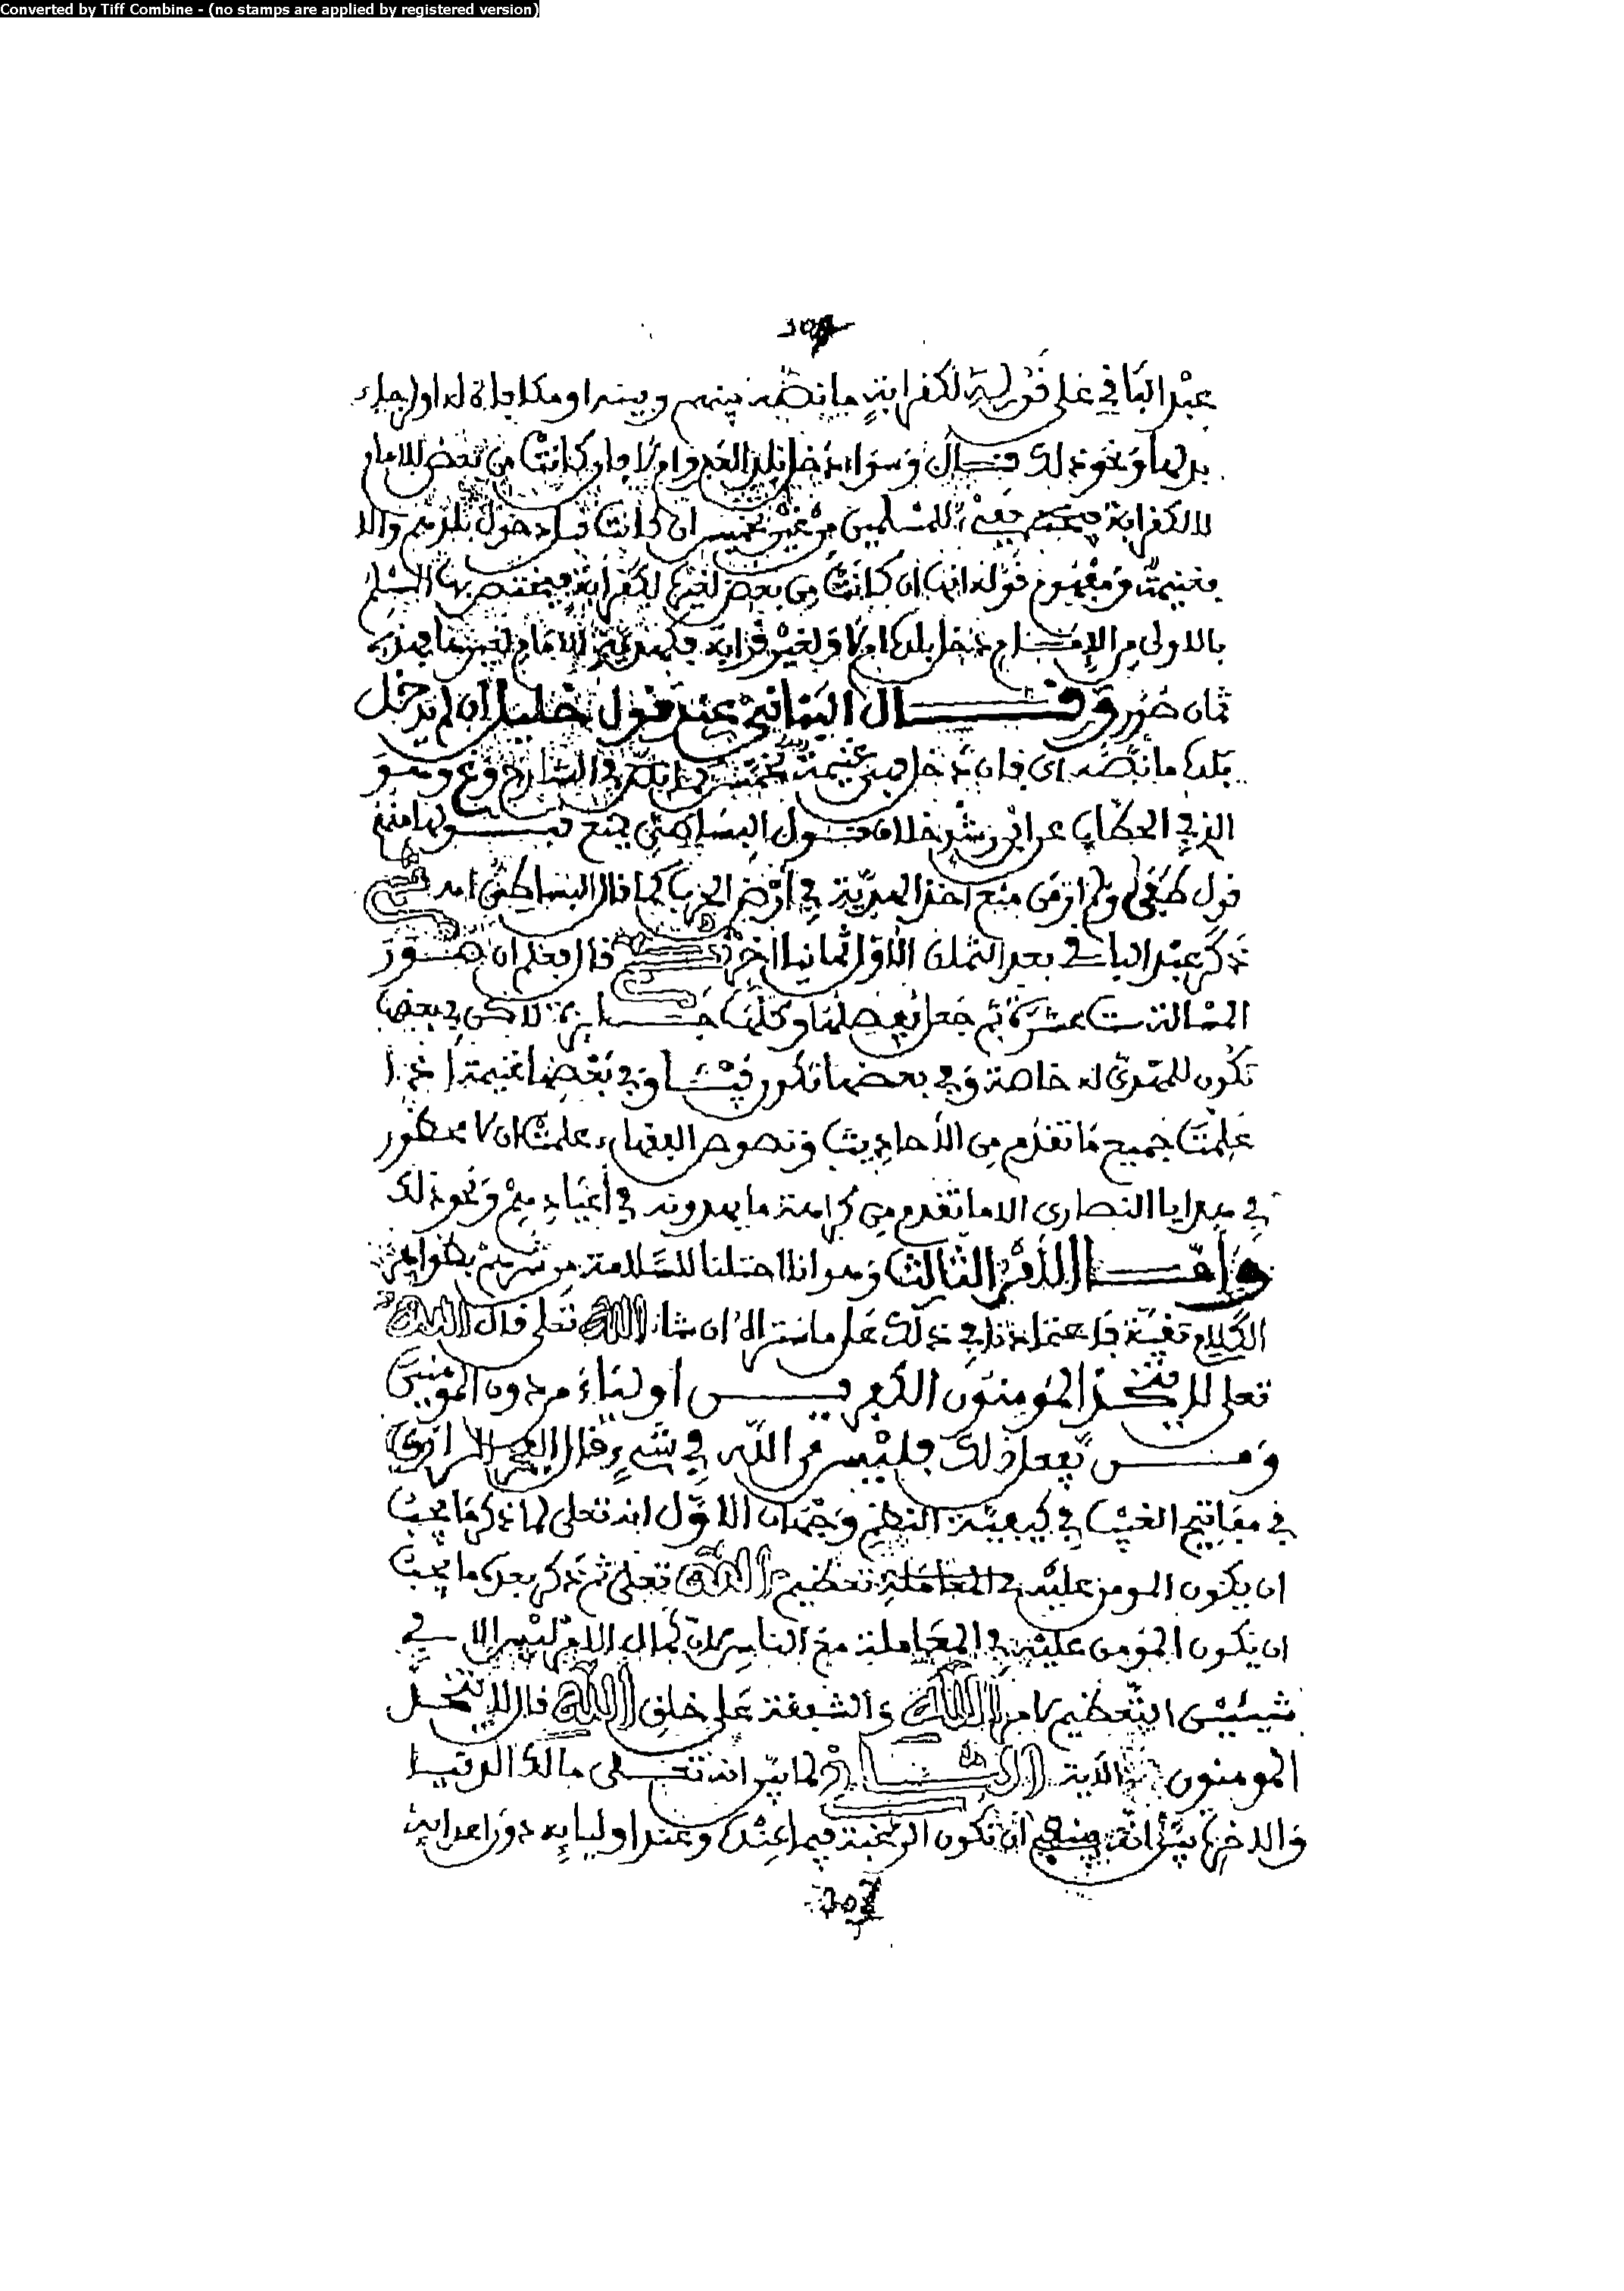 Converted by Tiff Combine - (no stamps are applied by registered version)
عبد الباقي على قوله لكفرابة ما نصه بينهم وبينه او مكاجاة له او لرجاء
بدلها ونحو ذلك قال وسواء دخل بلد العدو ام لا فلو كانت من بعض للامام
لا لكفرابة فيختص بجميع المسلمين من غير تخميس ان كانت قبل دخول بلدهم والا
فغنيمة ومفهوم قوله انها ان كانت من بعض لغيره لكفرابة فيختص بها
بالاولى من الإمام دخل بلده ام لا ولغير قرابة للامام لغيرها بهذه
ثمان صور وقال البناني عند قول خليل ان لم يدخل
بلده ما نصه اي فان دخل فهي غنيمة تخمس في الشارح وغ وهو
الذي في الحطاب عن ابن رشد خلاف قول البساطي يمنع قبولها منهم
قول طخفى ولم ار من منع اخذ الهدية في ارض الحرب كما قال البساطي اهـ
ذكر عبد الباقي بعد الثمان الاول ثمانيا اخر قال فعلم ان صور
المسالة ست عشرة ثم جعل يفصلها وكلها جائزة لاكن في بعضها
تكون للمهدى له خاصة وفي بعضها تكون فيئا وفي بعضها غنيمة اذا
علمت جميع ما تقدم من الأحاديث ونصوص الفقهاء علمت ان لا محظور
في هدايا النصارى الا ما تقدم من كراهة ما يهدونه في أعيادهم ونحو ذلك
وأما الأمر الثالث وهو اننا احتلنا للسلامة من شرهم بظواهر
الكلام تقية فاعتمادنا في ذلك على ما ستراه ان شاء الله تعلى قال الله
تعلى لا يتخذ المومنون الكفرين اولياء من دون المومنين
ومن يفعل ذلك فليس من الله في شيء قال الفخر الرازي
في مفاتيح الغيب في كيفية النظم وجهان الاول انه تعلى لما ذكر ما يجب
ان يكون المومن عليه في المعاملة تعظيم الله تعلى ثم ذكر بعده ما يجب
ان يكون المؤمن عليه في المعاملة مع الناس لان كمال الامر ليس الا في
شيئين التعظيم لامر الله والشفقة على خلق الله قال لا يتخذ
المومنون الاية الثاني لما بين انه تعلى مالك الدنيا
والاخرة بين انه ينبغي أن تكون الرغبة فيما عنده وعند اوليايه دون اعدايه